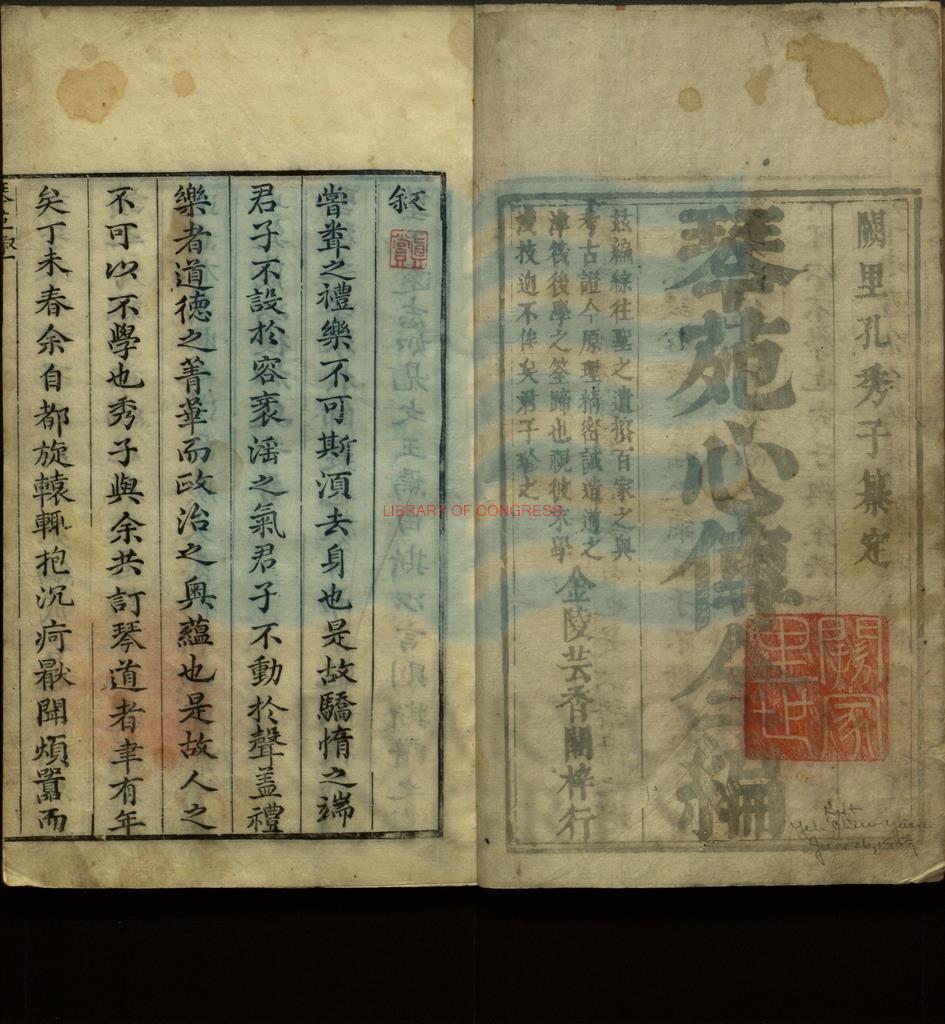 闕里孔秀子纂定
琴苑心傳全編
茲編綜往聖之遺摭百家之奧
考古證今原理精密誠道之
津筏後學之筌蹄也視彼末學
技迥不侔矣君子珍之
金陵芸香閣梓行
闕里世家
Gift
June 26, 1939
LIBRARY OF CONGRESS
叙
嘗聋之禮樂不可斯湏去身也是故驕惰之端
君子不設於容衺滛之氣君子不動於聲盖禮
樂者道德之菁華而政治之奥蘊也是故人之
不可以不學也秀子與余共訂琴道者聿有年
矣丁未春余自都旋轅輙抱沉疴厭聞煩嚣而